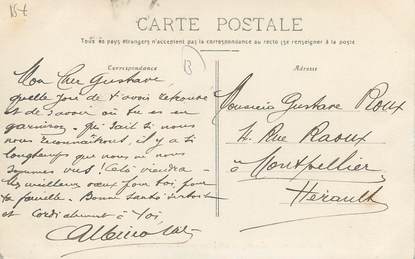 CARTE POSTALE
Tous les pays étrangers n'acceptent pas la correspondance au recto (se renseigner à la poste)
Correspondance
Adresse
B
Mon Cher Gustave,
quelle joie de t'avoir retrouvé
et de savoir où tu es en
garnison. Qui sait si nous
nous reconnaîtrons, il y a si
longtemps que nous ne nous
sommes vus! Cela viendra
les meilleurs vœux pour toi, pour
ta famille. Bonne santé surtout
et cordialement à toi
Monsieur Gustave Roux
Rue Raoux
à Montpellier
Hérault